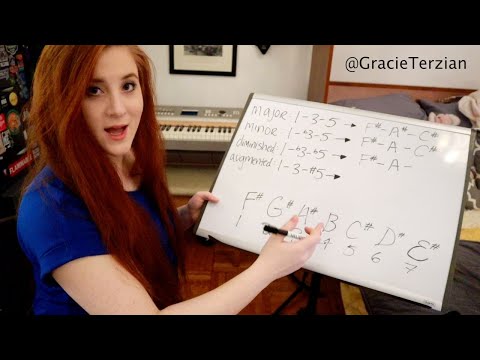 @GracieTerzian
major: 1-3-5 → F#-A#-C#
minor: 1-b3-5 → F#-A-C#
diminished: 1-b3-b5 → F#-A-
augmented: 1-3-#5 →
F# G# A# B C# D# E#
1 4 5 6 7